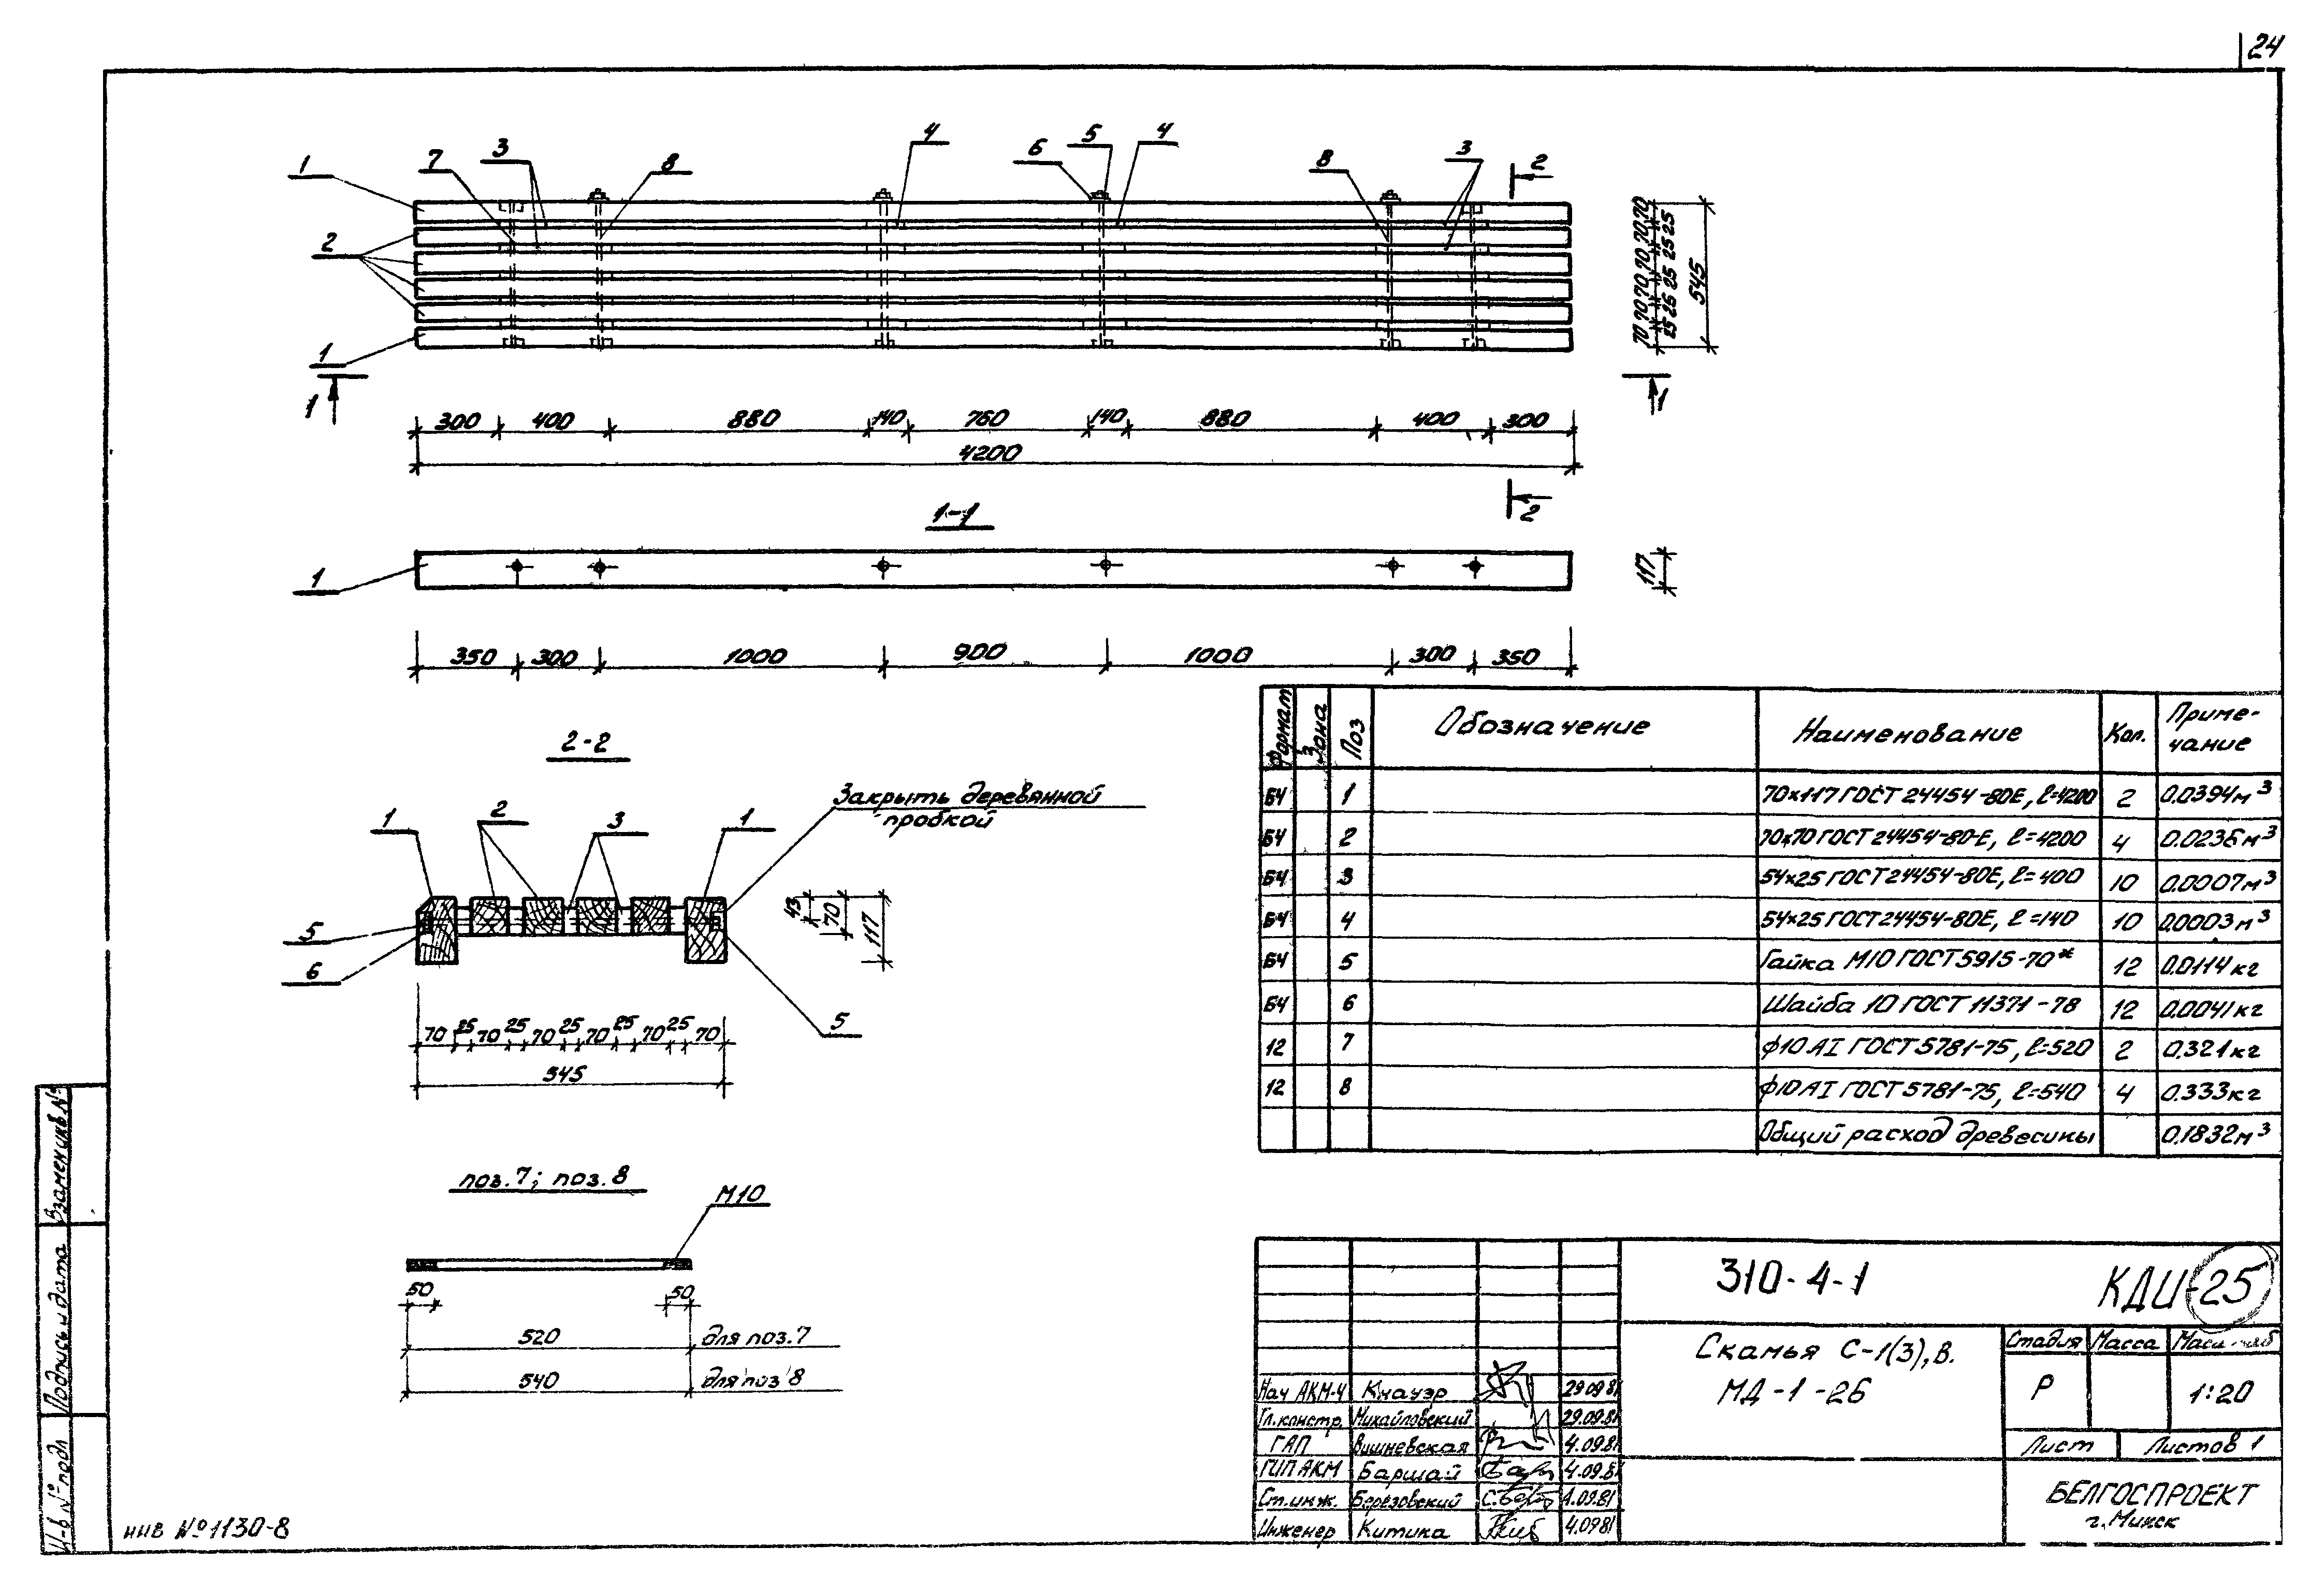 24
1
7
3
8
4
6
5
4
8
3
2
2
1
70 70 70 70 70 70
25 25 25 25 25
545
1
1
300 400 880 140 760 140 880 400 300
4200
2
1-1
1
117
350 300 1000 900 1000 300 350
2-2
Закрыть деревянной
пробкой
1
2
3
1
5
6
5
43
70
117
70 25 70 25 70 25 70 25 70 25 70
545
поз.7; поз.8
М10
50
50
520 для поз.7
540 для поз 8
Формат Зона Поз Обозначение Наименование Кол. Приме-
чание
БЧ 1 70×117 ГОСТ 24454-80Е, ℓ=4200 2 0.0394м³
БЧ 2 70×70 ГОСТ 24454-80-Е, ℓ=4200 4 0.0236м³
БЧ 3 54×25 ГОСТ 24454-80Е, ℓ=400 10 0.0007м³
БЧ 4 54×25 ГОСТ 24454-80Е, ℓ=140 10 0.0003м³
БЧ 5 Гайка М10 ГОСТ 5915-70* 12 0.0114кг
БЧ 6 Шайба 10 ГОСТ 11371-78 12 0.0041кг
12 7 ф10 АI ГОСТ 5781-75, ℓ=520 2 0.321кг
12 8 ф10 АI ГОСТ 5781-75, ℓ=540 4 0.333кг
Общий расход древесины 0.1832м³
310-4-1 КДИ-25
Скамья С-1(3), В.
МД-1-26
Стадия Масса Масштаб
Р 1:20
Лист Листов 1
БЕЛГОСПРОЕКТ
г. Минск
Нач АКМ-4 Кнауэр 29.09.81
Гл. констр. Михайловский 29.09.81
ГАП Вишневская 4.09.81
ГИП АКМ Баршай 4.09.81
Ст. инж. Березовский 4.09.81
Инженер Китика 4.0981
Взамен инв №
Подпись и дата
И-в № подл
инв №1130-8